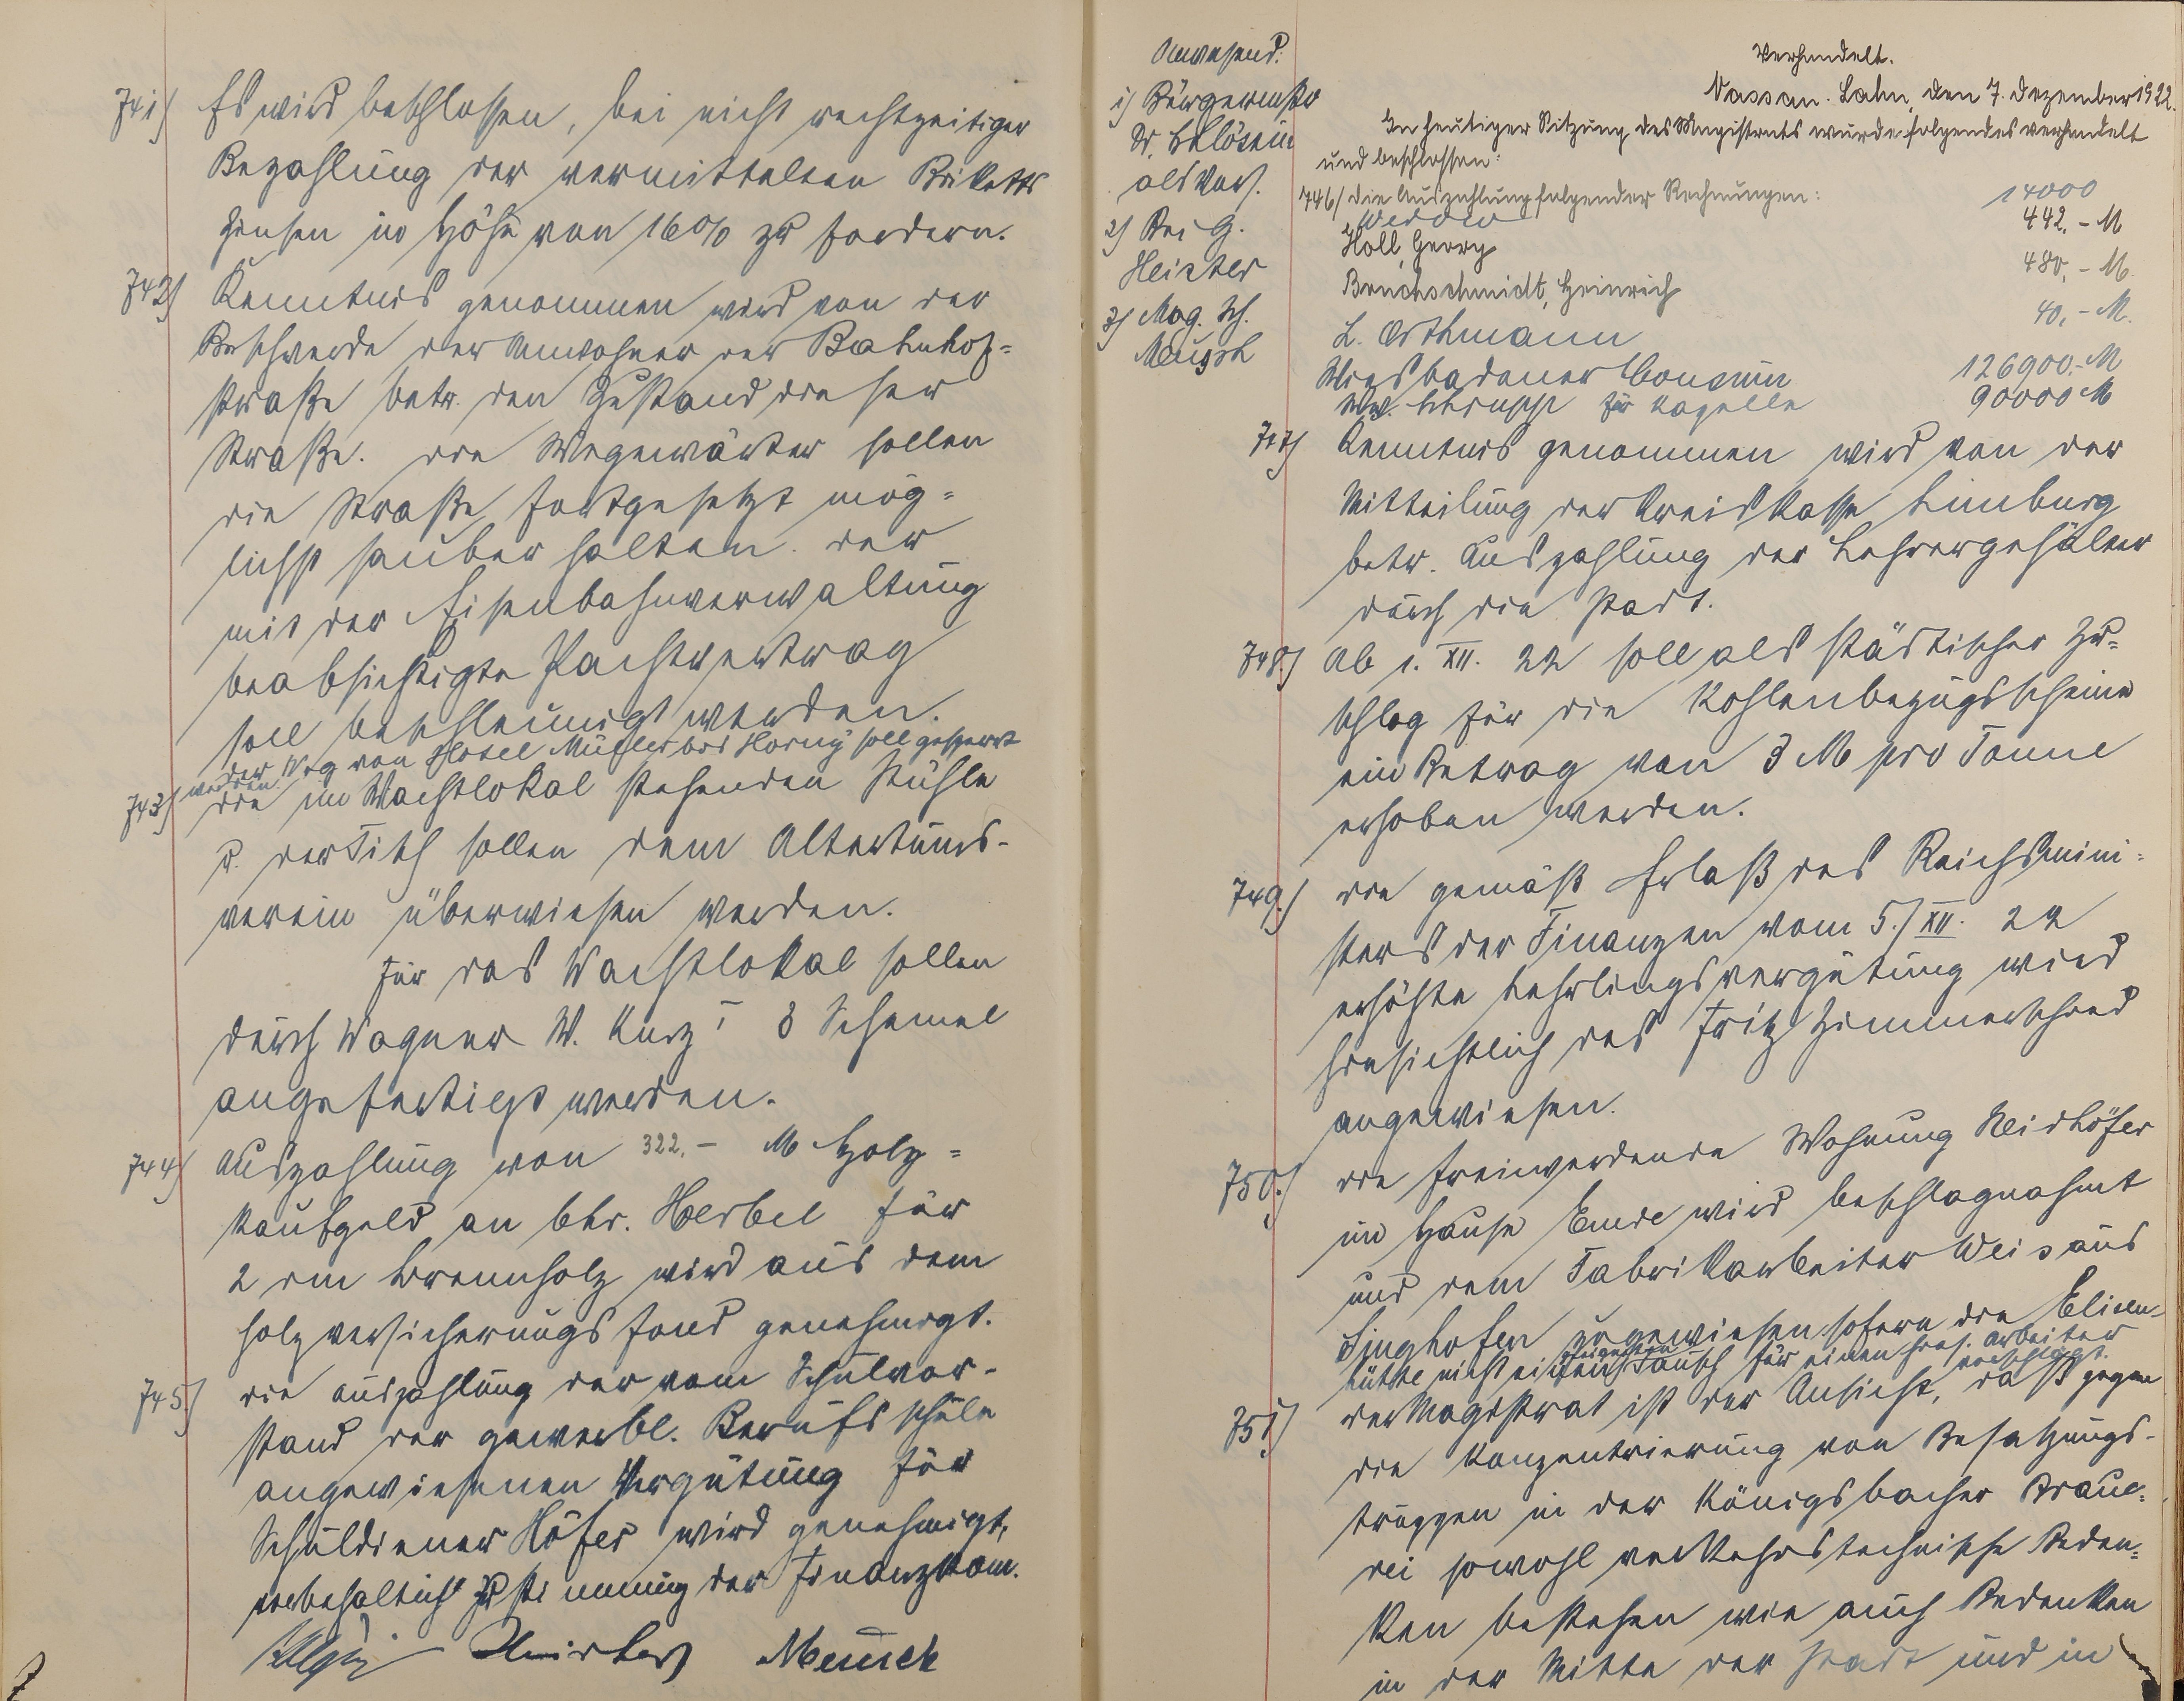 741) Es wird beschlossen, bei nicht rechtzeitiger
Bezahlung der vermittelten Briketts
Zinsen in Höhe von 16% zu fordern.
742) Kenntnis genommen wird von der
Beschwerde der Anwohner der Bahnhof=
straße betr. den Zustand dieser
Straße. Die Wegewärter sollen
die Straße fortgesetzt mög=
lichst sauber halten. Der
mit der Eisenbahnverwaltung
beabsichtigte Pachtvertrag
soll beschleunigt werden.
Der Weg von Hotel Müller bis Horny soll gesperrt
werden.
743) Die im Wachtlokal stehenden Stühle
u. der Tisch sollen dem Altertums-
verein überwiesen werden.
Für das Wachtlokal sollen
durch Wagner W. Kurz I 8 Schemel
angefertigt werden.
744) Auszahlung von 322,- M Holz=
kaufgeld an Chr. Herbel für
2 rm Brennholz wird aus dem
Holzversicherungsfond genehmigt.
745) Die Auszahlung der vom Schulvor-
stand der gewerbl. Berufsschule
angewiesenen Vergütung für
Schuldiener Höfer wird genehmigt,
vorbehaltlich Zustimmung der Finanzkom.
Meusch
Anwesend:
1) Bürgermstr
Dr. Schlösin
als Vors.
2) Bei G.
Heister
3) Mag. Sch.
Meusch
Verhandelt.
Nassau-Lahn, den 7. Dezember 1922.
In heutiger Sitzung des Magistrats wurde folgendes verhandelt
und beschlossen:
746) Die Auszahlung folgender Rechnungen:
14000
Holl, Georg 442,- M
Bruchschmidt, Heinrich 480,- M.
L. Orthmann 40,- M.
Wiesbadener Consum 126900,- M
Ww. Schrupp für Kapelle 90000 M
747) Kenntnis genommen wird von der
Mitteilung der Kreiskasse Limburg
betr. Auszahlung der Lehrergehälter
durch die Stadt.
748.) Ab 1. XII. 22 soll als städtischer Zu=
schlag für die Kohlenbezugsscheine
ein Betrag von 3 M pro Tonne
erhoben werden.
749.) Die gemäß Erlaß des Reichsmini=
sters der Finanzen vom 5./XII. 22
erhöhte Lehrlingsvergütung wird
hinsichtlich des Fritz Zimmerschied
angewiesen.
750.) Die freiwerdende Wohnung Neidhöfer
im Hause Emde wird beschlagnahmt
und dem Fabrikarbeiter Weis aus
Singhofen zugewiesen sofern die Elisen-
hütte nicht einen Tausch für einen hies. Arbeiter
vorschlägt.
751) Der Magistrat ist der Ansicht, daß gegen
die Konzentrierung von Besatzungs-
truppen in der Königsbacher Braue=
rei sowohl verkehrstechnische Beden=
ken bestehen wie auch Bedenken
in der Mitte der Stadt und in